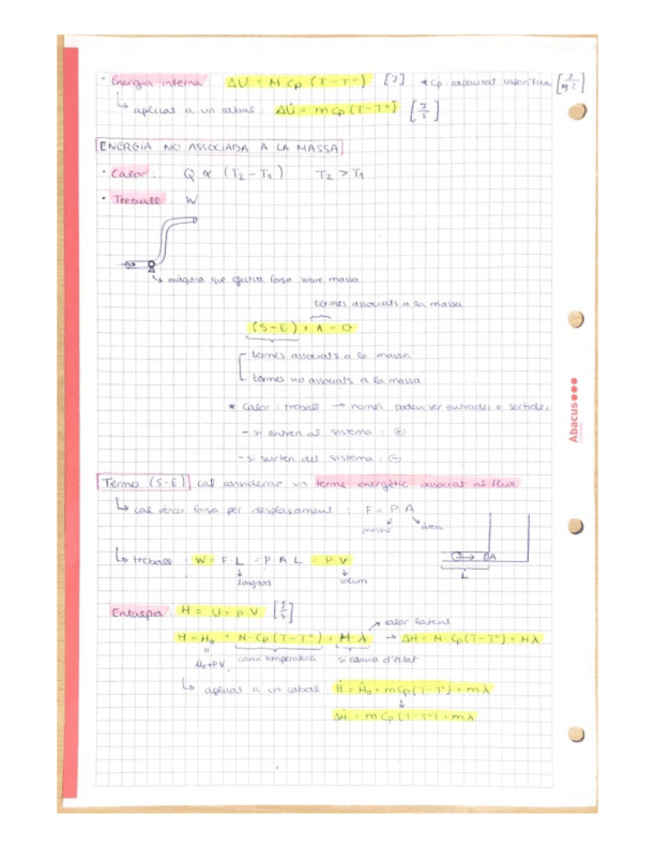 • Energia interna: ΔU = M Cp (T-T°) [J] *Cp: capacitat calorífica [J/kg °C]
↳ aplicat a un cabal: ΔU̇ = ṁ Cp (T-T°) [J/s]
ENERGIA NO ASSOCIADA A LA MASSA
• Calor: Q ∝ (T₂-T₁) T₂ > T₁
• Treball: W
↳ màquina que efectua força sobre massa
termes associats a la massa
(S-E) + A = 0
termes associats a la massa
termes no associats a la massa
* Calor i treball → només poden ser entrades o sortides
- si entren al sistema: ⊕
- si surten del sistema: ⊖
Termes (S-E) cal considerar un terme energètic associat al flux
↳ cal vèncer força per desplaçament: F = P·A
pressió àrea
↳ treball: W = F·L = P·A·L = P·V
longitud volum
L
Entalpia: H = U + P·V [J/s]
calor latent
H = H₀ + M·Cp(T-T°) + M·λ → ΔH = M·Cp(T-T°) + Mλ
U₀+PV canvi temperatura si canvia d'estat
↳ aplicat a un cabal Ḣ = Ḣ₀ + ṁCp(T-T°) + ṁλ
ΔḢ = ṁCp(T-T°) + ṁλ
Abacus